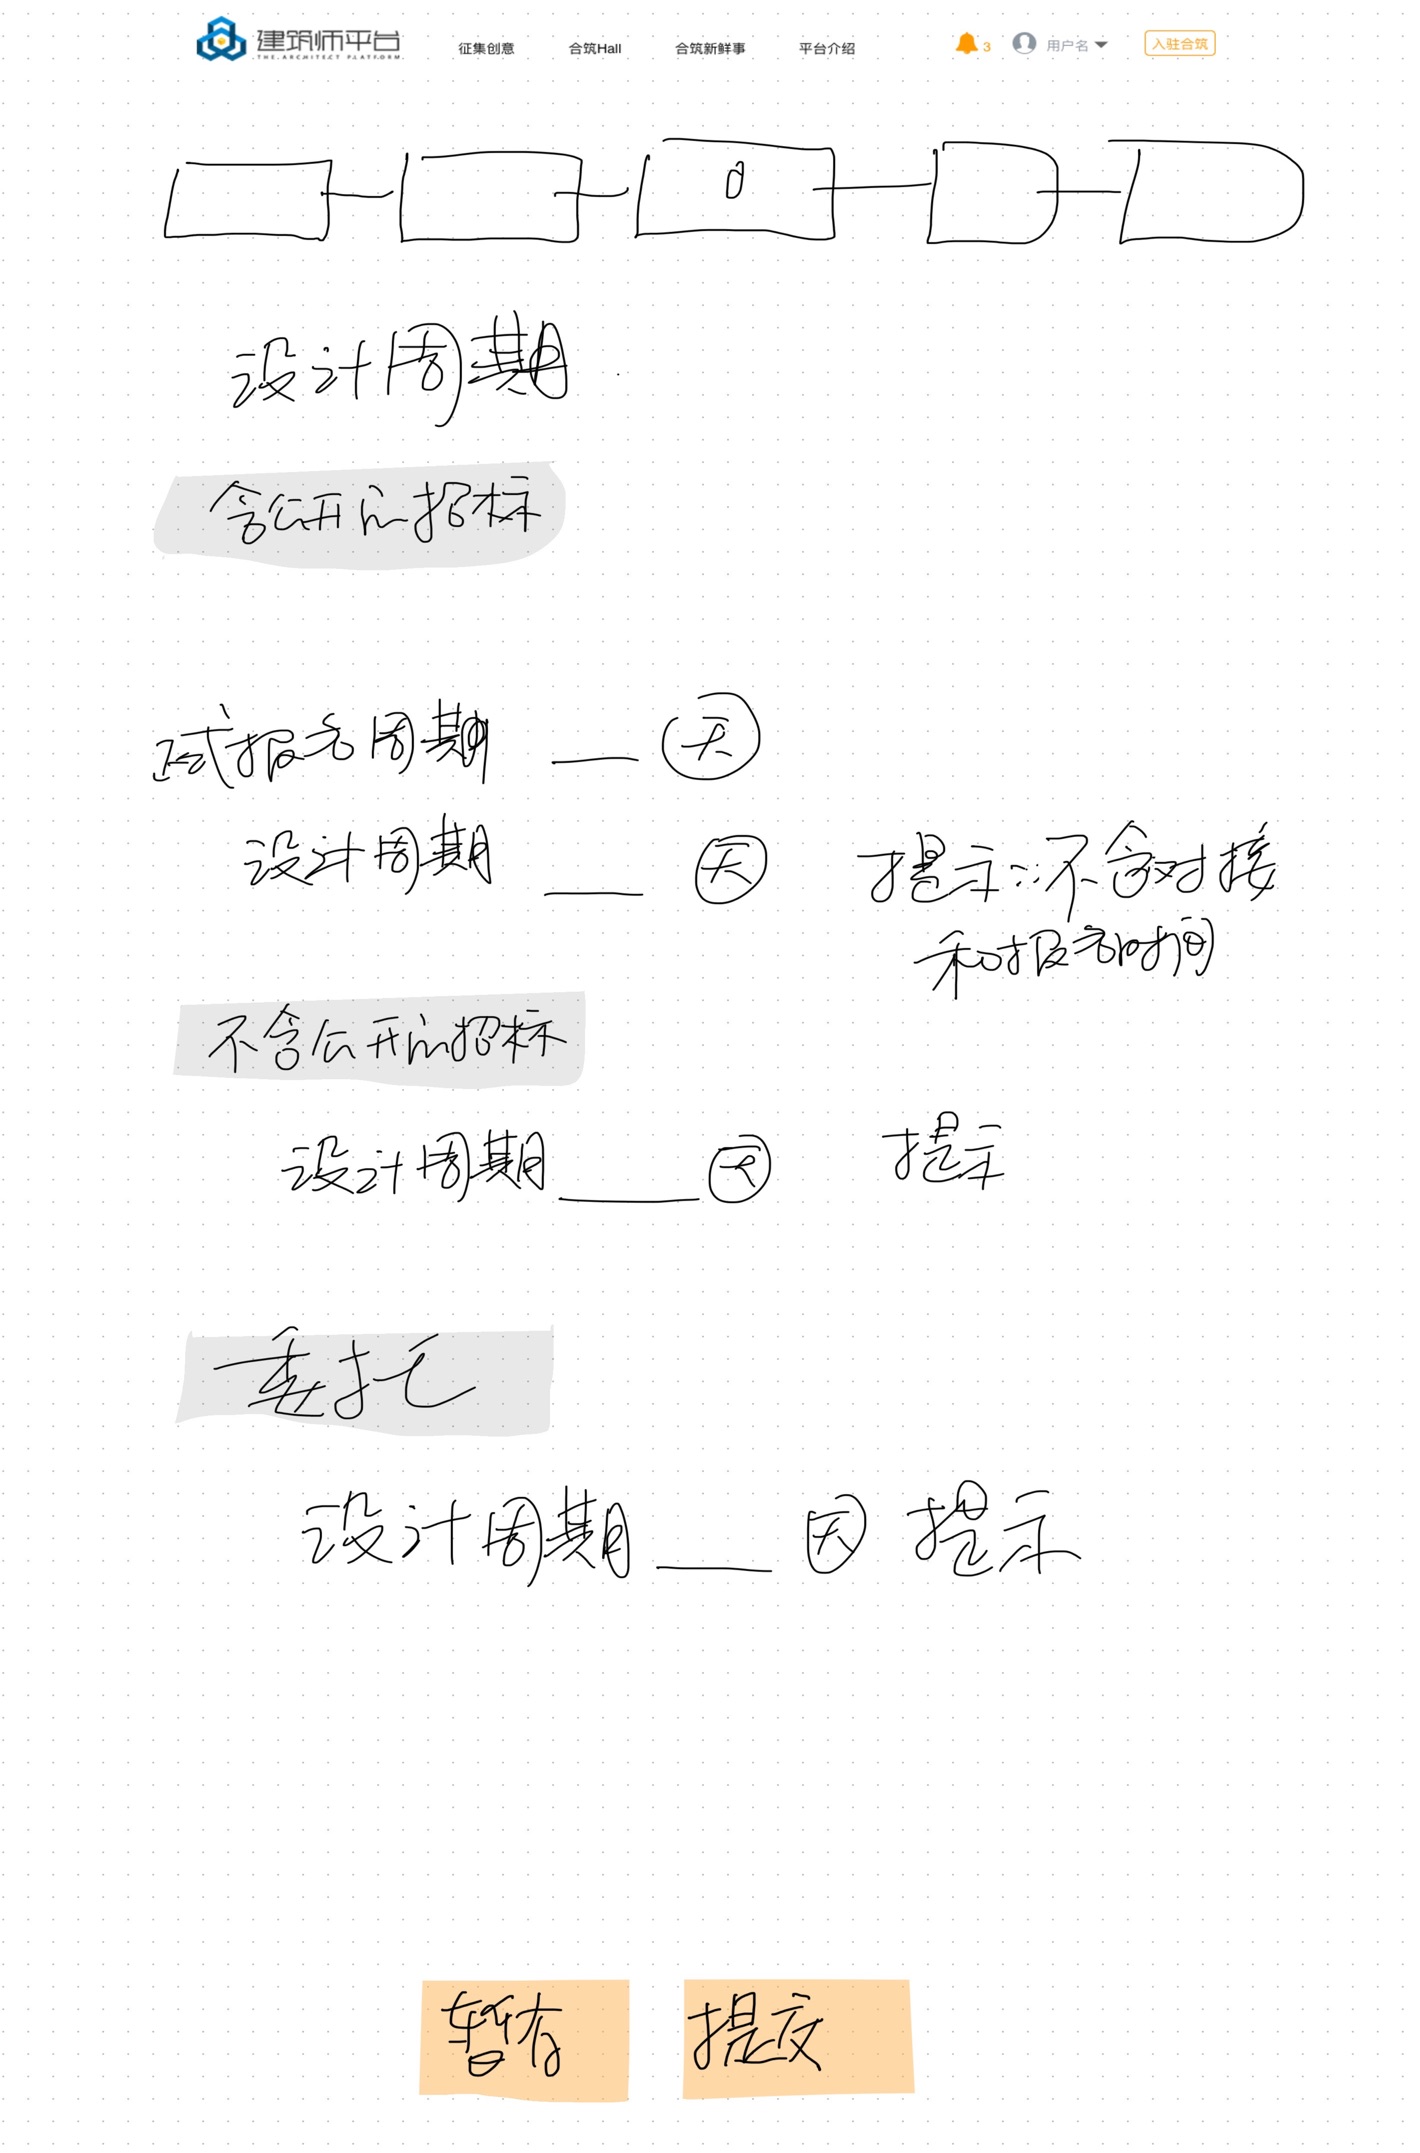 建筑师平台
THE ARCHITECT PLATFORM
征集创意 合筑Hall 合筑新鲜事 平台介绍 3 用户名 入驻合筑
设计周期
含公开的招标
正式报名周期 天
设计周期 天 提示:不含对接
和报名时间
不含公开的招标
设计周期 天 提示
委托
设计周期 天 提示
暂存 提交